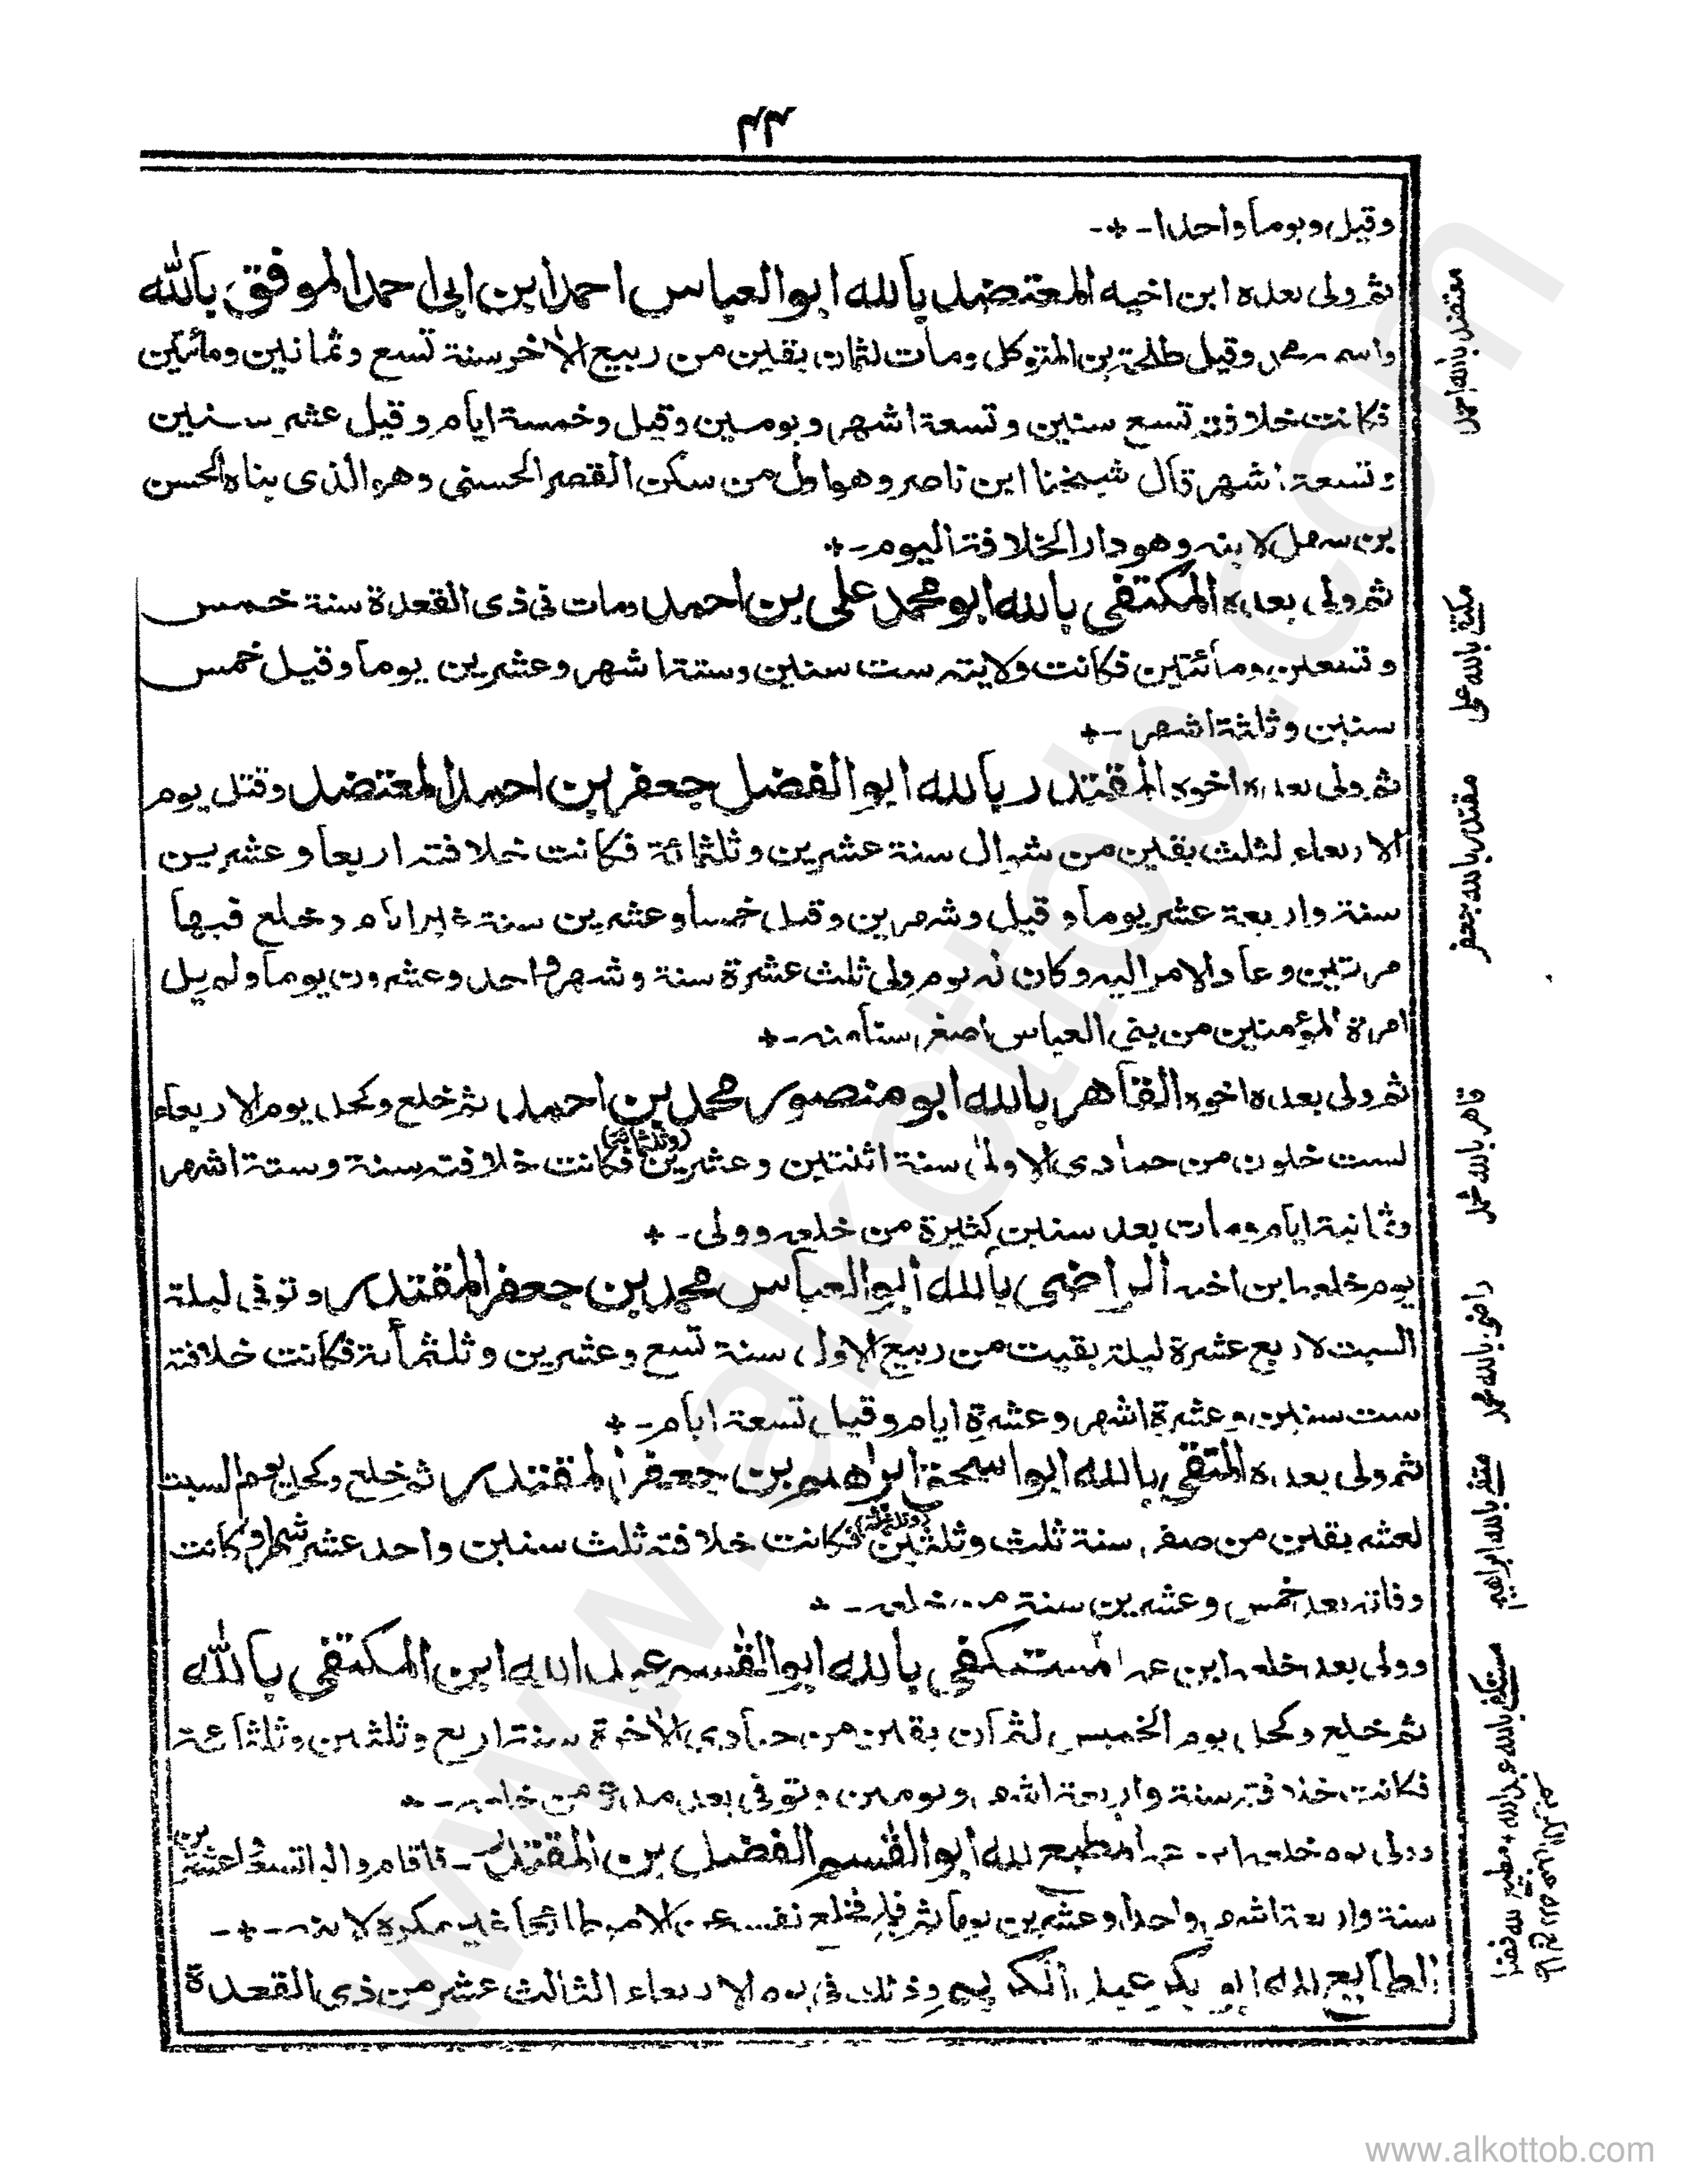 ٤٤
وقيل ويوماً واحدا -*-
ثم ولى بعده ابن اخيه المعتضد بالله ابو العباس احمد ابن ابى احمد الموفق بالله
واسمه محمد وقيل طلحة بن المتوكل ومات لثمان بقين من ربيع الاٰخر سنة تسع وثمانين ومائتين
فكانت خلافته تسع سنين وتسعة اشهر ويومين وقيل وخمسة ايام وقيل عشر سنين
وتسعة اشهر قال شيخنا ابن ناصر وهو اول من سكن القصر الحسنى وهو الذى بناه الحسن
بن سهل لابنته وهو دار الخلافة اليوم -*
ثم ولى بعده المكتفى بالله ابو محمد على بن احمد ومات فى ذى القعدة سنة خمس
وتسعين ومائتين فكانت ولايته ست سنين وستة اشهر وعشرين يوماً وقيل خمس
سنين وثلثة اشهر -*
ثم ولى بعده اخوه المقتدر بالله ابو الفضل جعفر بن احمد المعتضد وقتل يوم
الاربعاء لثلث بقين من شوال سنة عشرين وثلثمائة فكانت خلافته اربعاً وعشرين
سنة واربعة عشر يوماً وقيل وشهرين وقيل خمساً وعشرين سنة غير ايام وخلع فيها
مرتين وعاد الامر اليه وكان له يوم ولى ثلث عشرة سنة وشهر واحد وعشرون يوماً ولم يل
امرة المؤمنين من بنى العباس اصغر سناً منه -*
ثم ولى بعده اخوه القاهر بالله ابو منصور محمد بن احمد ثم خلع وكحل يوم الاربعاء
لست خلون من جمادى الاولىٰ سنة اثنتين وعشرين (وثلثمائة) فكانت خلافته سنة وستة اشهر
وثمانية ايام ومات بعد سنين كثيرة من خلعه وولى -*
يوم خلعه ابن اخيه الراضى بالله ابو العباس محمد بن جعفر المقتدر وتوفى ليلة
السبت لاربع عشرة ليلة بقيت من ربيع الاول سنة تسع وعشرين وثلثمائة فكانت خلافته
ست سنين وعشرة اشهر وعشرة ايام وقيل تسعة ايام -*
ثم ولى بعده المتقى بالله ابو اسحق ابراهيم بن جعفر المقتدر ثم خلع وكحل يوم السبت
لعشر بقين من صفر سنة ثلث وثلثين (وثلثمائة) فكانت خلافته ثلث سنين واحد عشر شهرا وكانت
وفاته بعد خمس وعشرين سنة من خلعه -*
وولى بعد خلعه ابن عمه المستكفى بالله ابو القٰسم عبد الله ابن المكتفى بالله
ثم خلع وكحل يوم الخميس لثمان بقين من جمادى الاٰخرة سنة اربع وثلثين وثلثمائة
فكانت خلافته سنة واربعة اشهر ويومين وتوفى بعد مدة من خلعه -*
وولى يوم خلعه ابن عمه المطيع لله ابو القٰسم الفضل بن المقتدر - فاقام واليا تسعا وعشرين
سنة واربعة اشهر واحدا وعشرين يوماً ثم فلج فخلع نفسه عن الامر طائعا غير مكره لابنه -*-
الطايع لله ابو بكر عبد الكريم وذلك فى يوم الاربعاء الثالث عشر من ذى القعدة
معتضد بالله احمد
مكتفى بالله على
مقتدر بالله جعفر
قاهر بالله محمد
راضى بالله محمد
متقى بالله ابراهيم
مستكفى بالله عبد الله
مطيع لله فضل
www.alkottob.com
www.alkottob.com